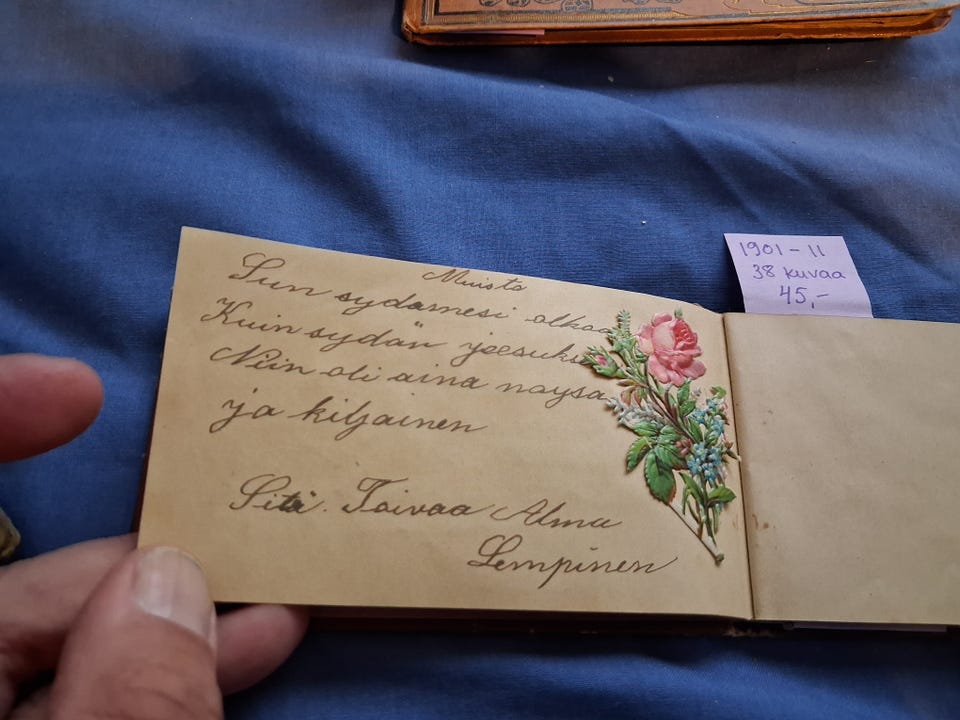 Muisto
Sun sydamesi olkoo
Kuin sydän jeesuks
Niin oli aina noysa
ja kiljainen
Sitä. Toivaa Alma
Lempinen
1901-11
38 kuvaa
45,-